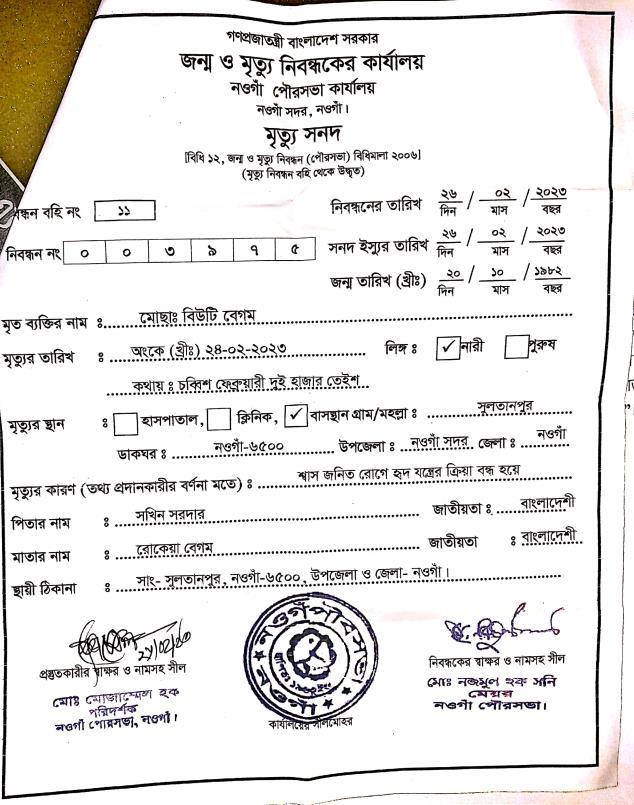 গণপ্রজাতন্ত্রী বাংলাদেশ সরকার
জন্ম ও মৃত্যু নিবন্ধকের কার্যালয়
নওগাঁ পৌরসভা কার্যালয়
নওগাঁ সদর, নওগাঁ।
মৃত্যু সনদ
[বিধি ১২, জন্ম ও মৃত্যু নিবন্ধন (পৌরসভা) বিধিমালা ২০০৬]
(মৃত্যু নিবন্ধন বহি থেকে উদ্ধৃত)
বন্ধন বহি নং ১১
নিবন্ধনের তারিখ ২৬ / ০২ / ২০২৩
দিন মাস বছর
নিবন্ধন নং ০ ০ ৩ ৯ ৭ ৫
সনদ ইস্যুর তারিখ ২৬ / ০২ / ২০২৩
দিন মাস বছর
জন্ম তারিখ (খ্রীঃ) ২০ / ১০ / ১৯৮২
দিন মাস বছর
মৃত ব্যক্তির নাম ঃ মোছাঃ বিউটি বেগম
মৃত্যুর তারিখ ঃ অংকে (খ্রীঃ) ২৪-০২-২০২৩ লিঙ্গ ঃ ✓ নারী পুরুষ
কথায় ঃ চব্বিশ ফেব্রুয়ারী দুই হাজার তেইশ
মৃত্যুর স্থান ঃ হাসপাতাল, ক্লিনিক, ✓ বাসস্থান গ্রাম/মহল্লা ঃ সুলতানপুর
ডাকঘর ঃ নওগাঁ-৬৫০০ উপজেলা ঃ নওগাঁ সদর জেলা ঃ নওগাঁ
মৃত্যুর কারণ (তথ্য প্রদানকারীর বর্ণনা মতে) ঃ শ্বাস জনিত রোগে হৃদ যন্ত্রের ক্রিয়া বন্ধ হয়ে
পিতার নাম ঃ সখিন সরদার জাতীয়তা ঃ বাংলাদেশী
মাতার নাম ঃ রোকেয়া বেগম জাতীয়তা ঃ বাংলাদেশী
স্থায়ী ঠিকানা ঃ সাং- সুলতানপুর, নওগাঁ-৬৫০০, উপজেলা ও জেলা- নওগাঁ।
প্রস্তুতকারীর স্বাক্ষর ও নামসহ সীল
মোঃ মোজাম্মেল হক
পরিদর্শক
নওগাঁ পৌরসভা, নওগাঁ।
নওগাঁ পৌরসভা
নওগাঁ
কার্যালয়ের সীলমোহর
নিবন্ধকের স্বাক্ষর ও নামসহ সীল
মোঃ নজমুল হক সনি
মেয়র
নওগাঁ পৌরসভা।